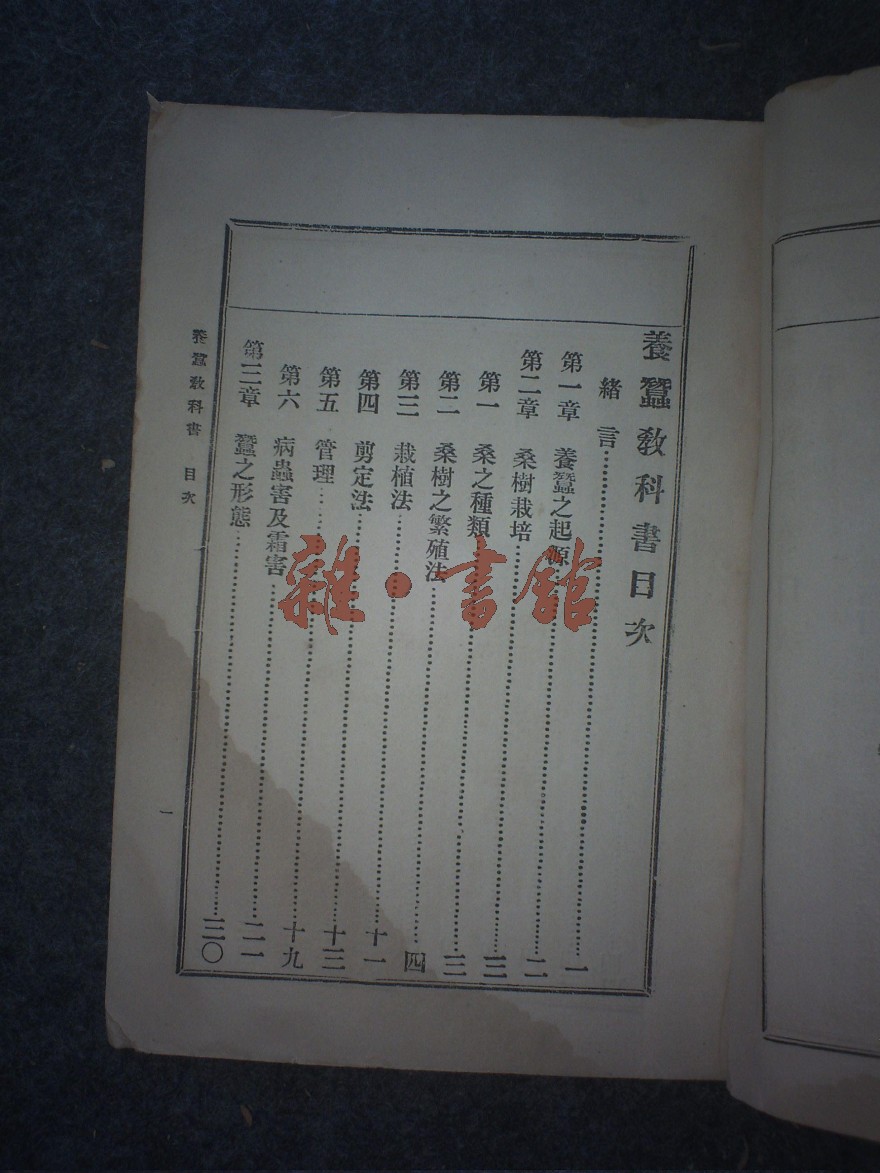 養蠶教科書目次
緒言……一
第一章 養蠶之起源……二
第二章 桑樹栽培……三
第一 桑之種類……三
第二 桑樹之繁殖法……四
第三 栽植法……十一
第四 剪定法……十三
第五 管理……十九
第六 病蟲害及霜害……二一
第三章 蠶之形態……三〇
養蠶教科書 目次
一
雜·書館